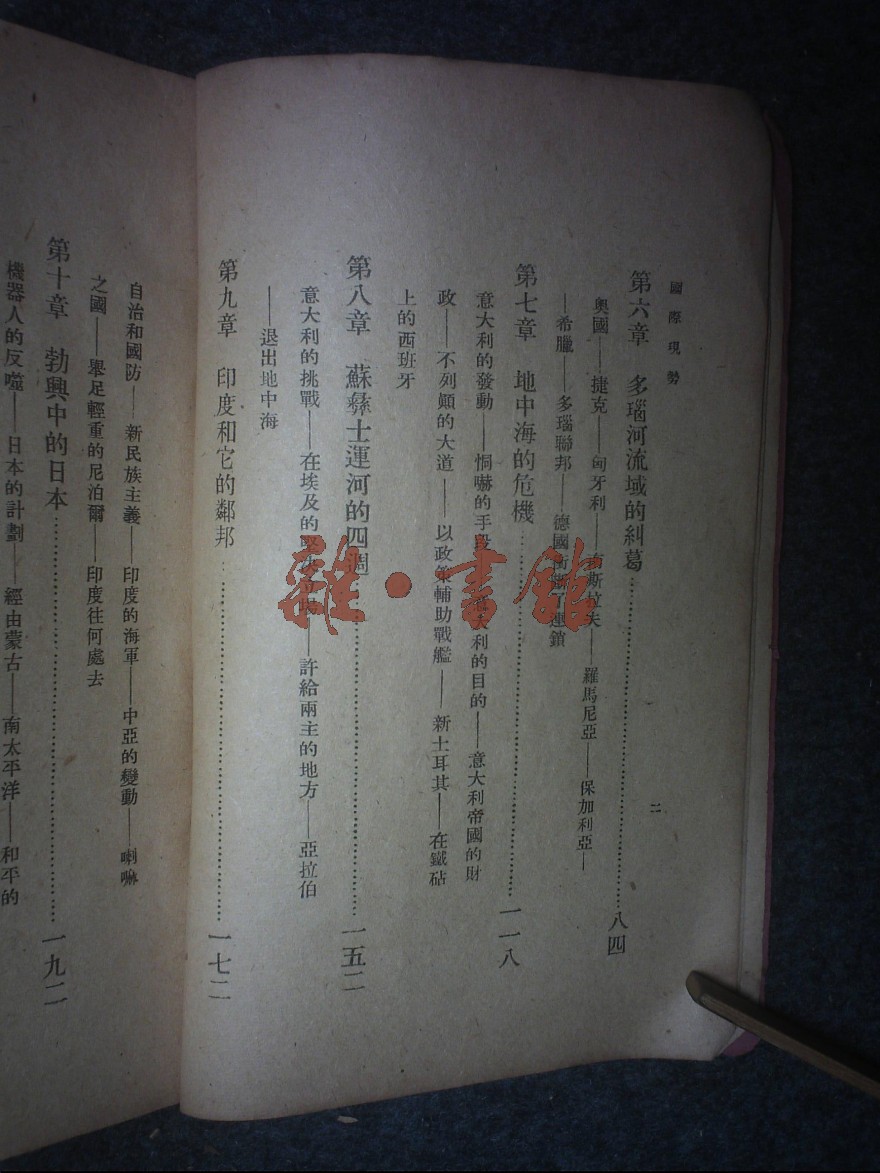 國際現勢
二
第六章 多瑙河流域的糾葛……八四
奧國——捷克——匈牙利——斯拉夫——羅馬尼亞——保加利亞—
—希臘——多瑙聯邦——德國連鎖
第七章 地中海的危機……一一八
意大利的發動——恫嚇的手段——意大利的目的——意大利帝國的財
政——不列顛的大道——以政策輔助戰艦——新土耳其——在鐵砧
上的西班牙
第八章 蘇彝士運河的四週……一五二
意大利的挑戰——在埃及的——許給兩主的地方——亞拉伯
——退出地中海
第九章 印度和它的鄰邦……一七二
自治和國防——新民族主義——印度的海軍——中亞的變動——喇嘛
之國——舉足輕重的尼泊爾——印度往何處去
第十章 勃興中的日本……一九二
機器人的反噬——日本的計劃——經由蒙古——南太平洋——和平的
雜·書館